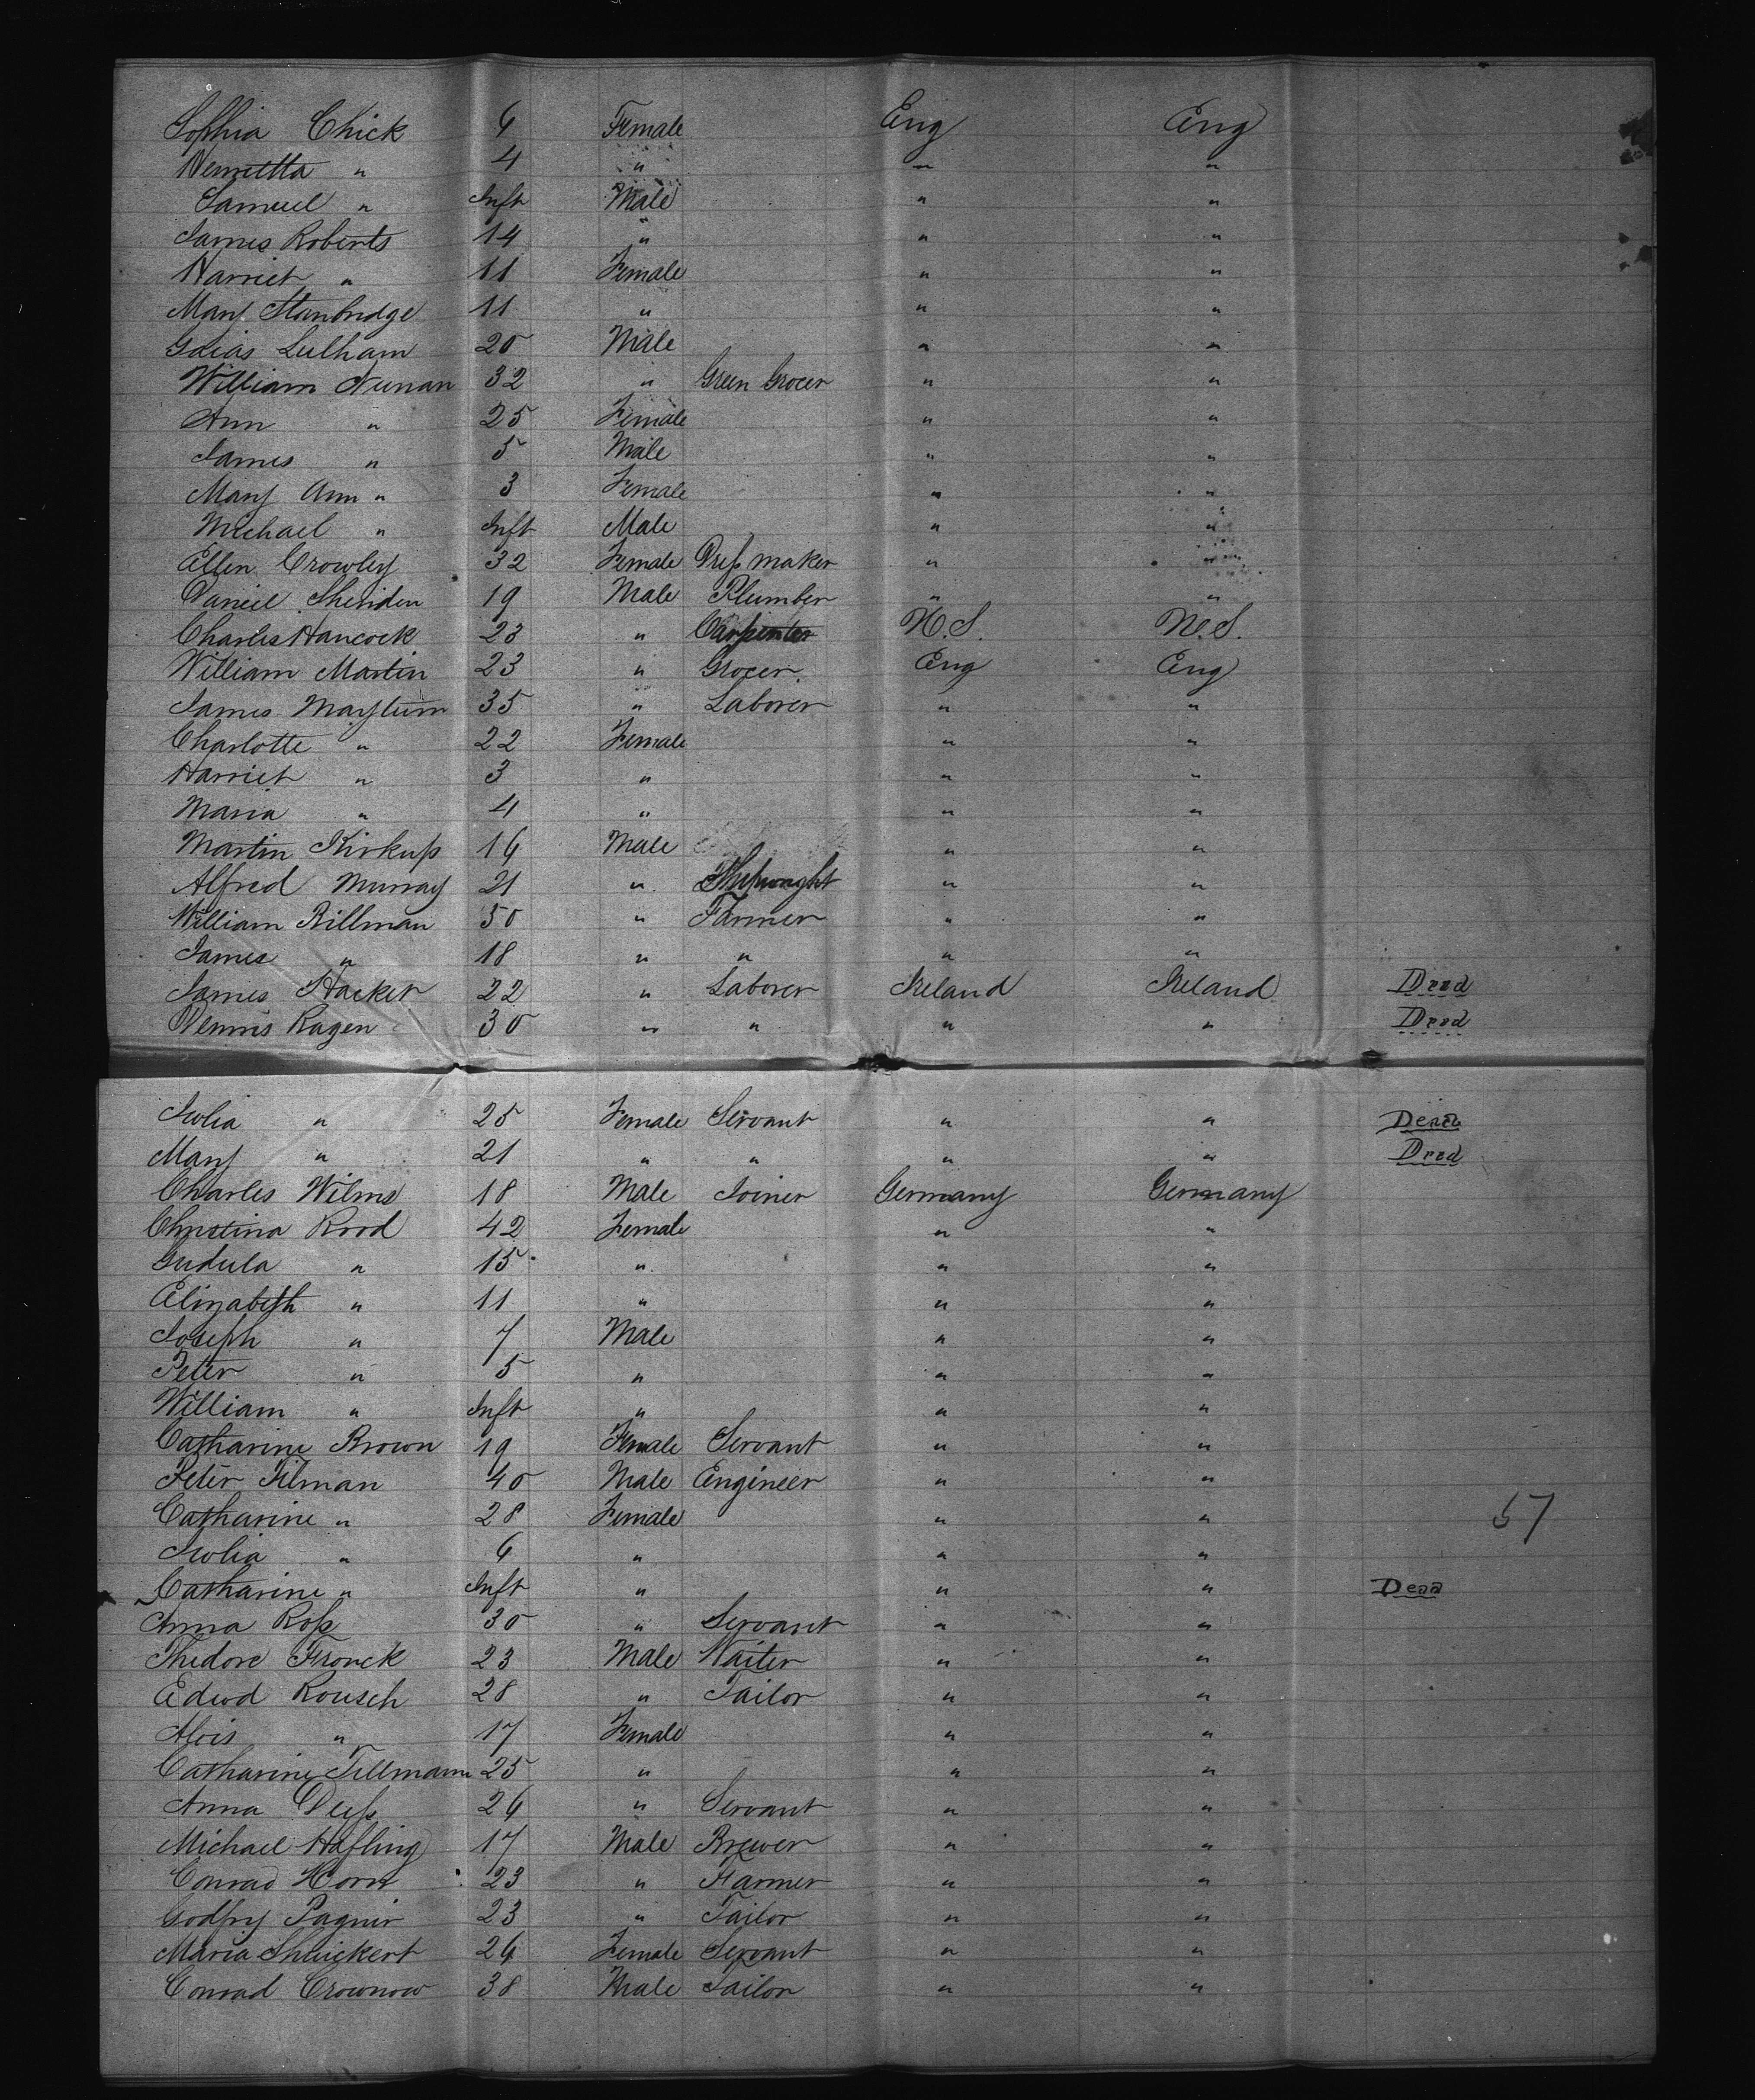 Sophia Chick 6 Female Eng Eng
Henrietta " 4 " " "
Samuel " Inft Male " "
James Roberts 14 " " "
Harriet " 11 Female " "
Mary Stanbridge 11 " " "
Lulham 20 Male " "
William Nunan 32 " Green Grocer " "
Ann " 25 Female " "
James " 5 Male " "
Mary Ann " 3 Female " "
Michael " Inft Male " "
Ellen Crowley 32 Female Dress maker " "
Daniel Sheriden 19 Male Plumber " "
Charles Hancock 23 " Carpenter
William Martin 23 " Grocer Eng Eng
James Maylum 35 " Laborer " "
Charlotte " 22 Female " "
Harriet " 3 " " "
Maria " 4 " " "
Martin Kirkup 16 Male " "
Alfred Murray 21 " Shipwright " "
William Billman 50 " Farmer " "
James " 18 " " " "
James Hacker 22 " Laborer Ireland Ireland Dead
Dennis Ragen 30 " " " " Dead
Julia " 25 Female Servant " " Dead
Mary " 21 " " " " Dead
Charles Wilms 18 Male Joiner Germany Germany
Christina Rood 42 Female " "
Gudula " 15 " " "
Elizabeth " 11 " " "
Joseph " 7 Male " "
Peter " 5 " " "
William " Inft " " "
Catharine Brown 19 Female Servant " "
Peter Tilman 40 Male Engineer " "
Catharine " 28 Female " "
57
Julia " 6 " " "
Catharine " Inft " " " Dead
Anna Ross 30 " Servant " "
Thedore Fronck 23 Male Waiter " "
Edwd Rousch 28 " Tailor " "
Alois " 17 Female " "
Catharine Tillmann 25 " " "
Anna Deiss 26 " Servant " "
Michael Hafling 17 Male Brewer " "
Conrad Horn 23 " Farmer " "
Godfry Pagnir 23 " Tailor " "
Maria 26 Female Servant " "
Conrad Crownow 38 Male Tailor " "